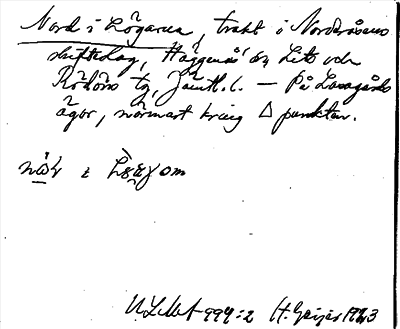 Nord i Lögarna, trakt i Nordråsens
skifteslag, Häggenås' sn, Lits och
Rödöns tg, Jämtl. l. — På Lasagårds
ägor, närmast kring △ punkten.
i
ULMA 999:2 H. Geijer 1943